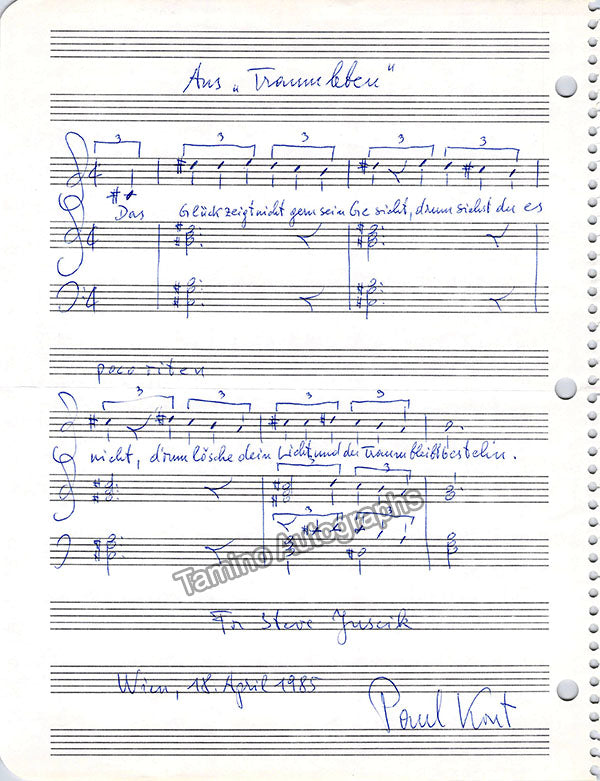 Aus „Traumleben“
3 3 3 3 3
Das Glück zeigt nicht gern sein Gesicht, drum siehst du es
poco riten
3 3 3 3
nicht, drum lösche dein Licht und der Traum bleibt bestehn.
3 3
3 3
Tamino Autographs
For Steve Juscik
Wien, 18. April 1985
Paul Kont